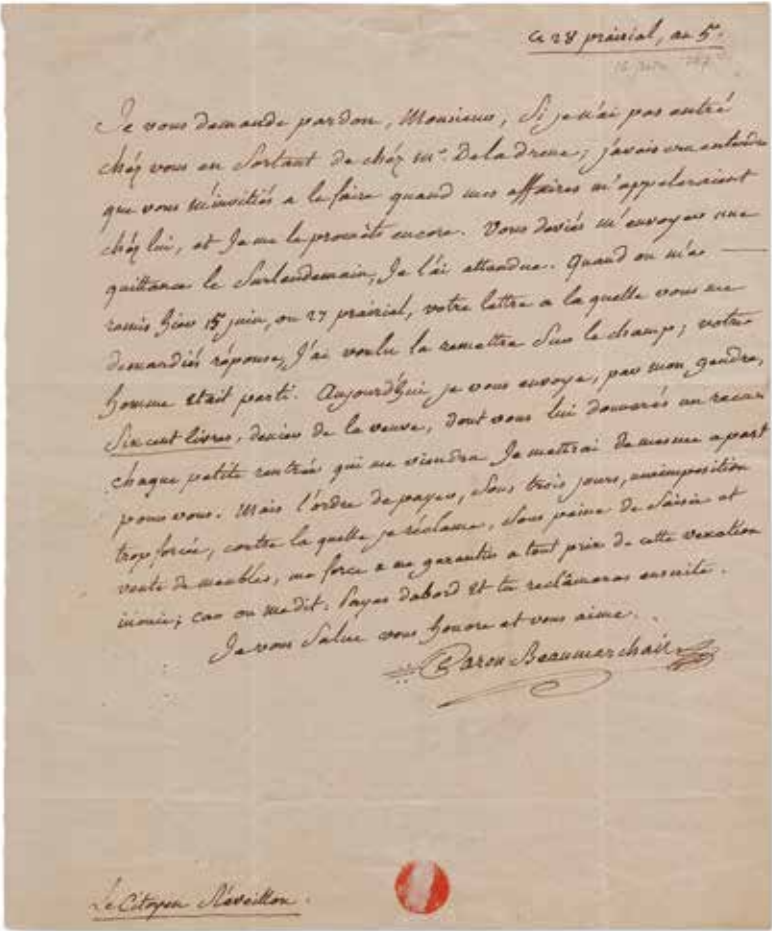 Ce 28 prairial, an 5e.
16 juin 1797
Je vous demande pardon, Monsieur, Si je n'ai pas entré
chéz vous en Sortant de chéz Mr. Deladreue; j'avais cru entendre
que vous m'invitiés a le faire quand mes affaires m'appeleraient
chéz lui, et Je me le promèts encore. Vous deviés m'envoyer une
quittance le Surlendemain, Je l'ai attendue. Quand on m'a
remis hier 15 juin, ou 27 prairial, votre lettre a la quelle vous me
demandiés réponse, J'ai voulu la remettre Sur le champ; votre
homme était parti. Aujourd'hui je vous envoye, par mon gendre,
Six cent livres, denier de la veuve, dont vous lui donnerés un recu.
chaque petite rentrée qui me viendra Je mettrai de mesme apart
pour vous. Mais l'ordre de payer, Sous trois jours, une imposition
trop forcée, contre la quelle je réclame, Sous peine de Saisie et
vente de meubles, me force a me garantir a tout prix de cette vexation
inouie; car on me dit: Payes dabord et tu reclâmeras ensuite.
Je vous Salue vous honore et vous aime.
Caron Beaumarchais
Le Citoyen Réveillon.